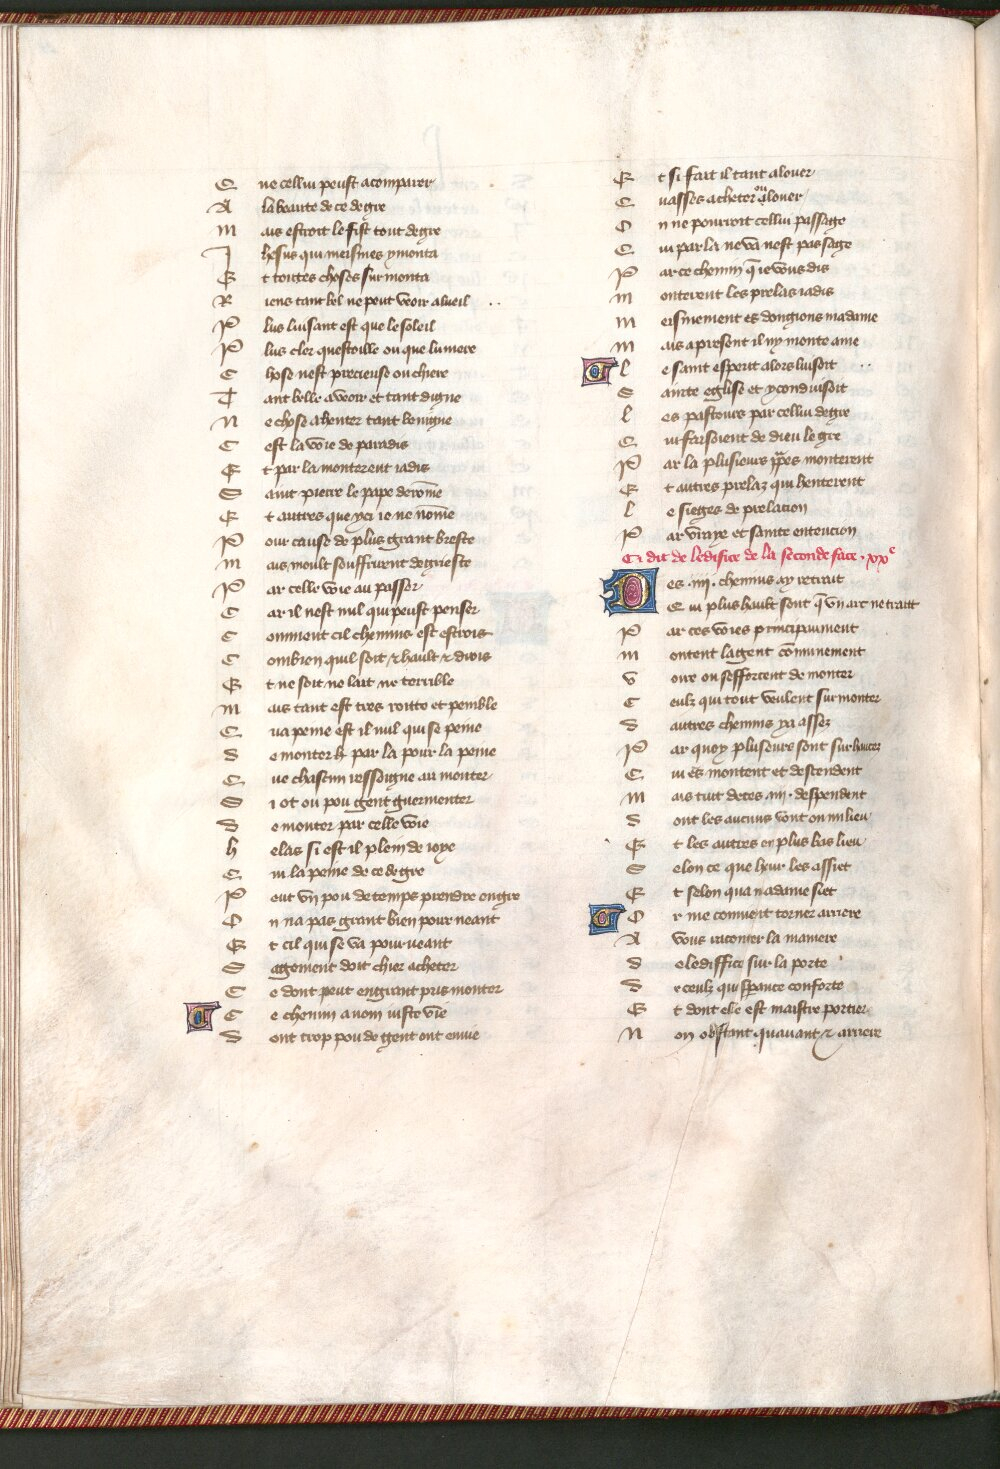 Q ne cellui peust acomparer
A la beaute de ce degre
M ais estroit le fist tout degre
J hesus qui meismes y monta
E t toutes choses surmonta
R iens tant bel ne peut veoir a lueil
P lus luisant est que le soleil
P lus cler questoille ou que lumiere
C hose nest precieuse ou chiere
T ant belle a veoir et tant digne
N e chose a henter tant benigne
C est la voie de paradis
E t par la monterent iadis
S aint pierre le pape de rome
E t autres que yci ie ne nome
P our cause de plus grant brefte
M ais moult souffrirent de griefte
P ar celle voie au passer
C ar il nest nul qui peust penser
C omment cil chemins est estrois
C ombien quil soit & hault & drois
E t ne soit ne lait ne terrible
M ais tant est tres roitte et penible
Q ua peine est il nul qui se peine
D e monter par la pour la peine
Q ue chascun ressoigne au monter
S i ot on pou gent guermenter
D e monter par celle voie
H elas si est il plein de ioye
Q ui la peine de ce degre
P eut vn pou de temps prendre en gre
O n na pas grant bien pour neant
E t cil qui se va pourueant
S agement doit chier acheter
C e dont peut en grant pris monter
C e chemin a nom iuste vie
D ont trop pou de gent ont enuie
E t si fait il tant a louer
Q uasses acheter ou alouer
O n ne pourroit cellui passage
Q ui par la ne va nest pas sage
P ar ce chemin q̄ ie vous dis
M onterent les prelas iadis
M eismement es dongions madame
M ais a present il ny monte ame
L e saint esperit alors luisoit
S aincte eglise et y conduisoit
L es pastours par cellui degre
Q ui faisoient de dieu le gre
P ar la plusieurs ppes monterent
E t autres prelaz qui henterent
L e sieges de prelation
P ar vraye et sainte entencion
Ci dit de ledifice de la seconde face . xx e
D es . iiii . chemins ay retrait
Q ui plus hault sont q̄ vn arc ne traitt
P ar ces voies principaument
M ontent la gent cōmunement
V oire ou sefforcent de monter
C eulz qui tout veulent surmonter
D autres chemins y a assez
P ar quoy pluseurs sont surhaucez
Q ui es montent et descendent
M ais tuit de ces . iiii . despendent
D ont les aucuns vont on milieu
E t les autres en plus bas lieu
S elon ce que heur les assiet
E t selon qua madame siet
O r me conuient torner arriere
A vous raconter la maniere
D e lediffice sur la porte
D e ceulz qui sperance conforte
E t dont elle est maistre portiere
N on obstant quauant & arriere